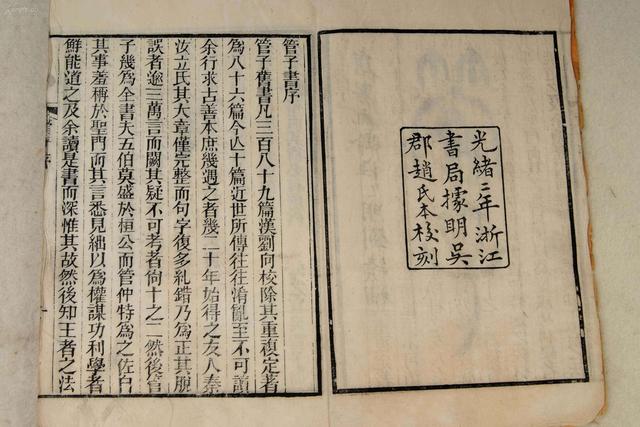 光緒二年浙江
書局據明吳
郡趙氏本校刻
管子書序
管子舊書凡三百八十九篇漢劉向校除其重復定著
為八十六篇今亡十篇近世所傳往往淆亂至不可讀
余行求古善本庶幾遇之者幾二十年始得之友人秦
汝立氏其大章僅完整而句字復多糺錯乃為正其脫
誤者逾三萬言而闕其疑不可考者尚十之二然後管
子幾為全書夫五伯莫盛於桓公而管仲特為之佐自
其事羞稱於聖門而其言悉見絀以為權謀功利學者
鮮能道之及余讀是書而深惟其故然後知王者之法